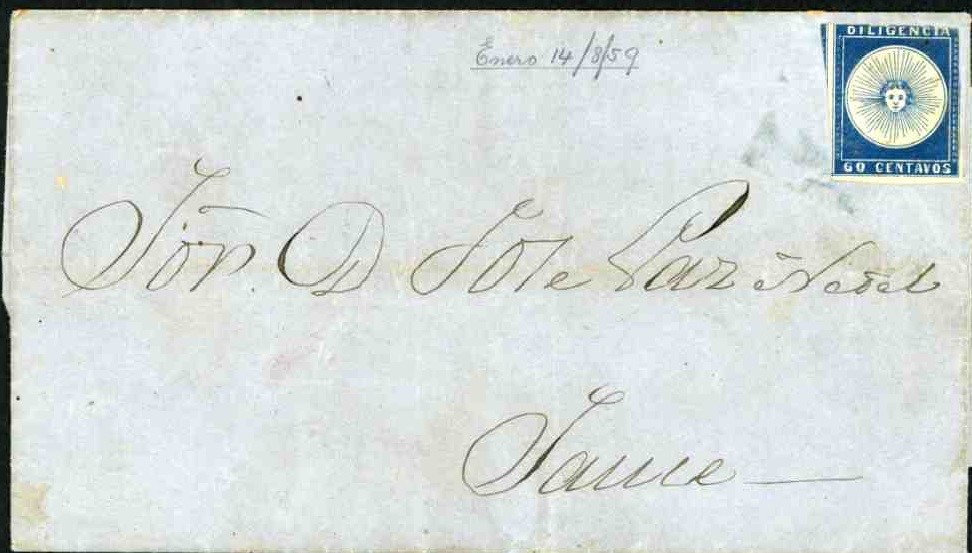 Enero 14/8/59
DILIGENCIA
60 CENTAVOS
Sör. D Jose Paz é
Sauce